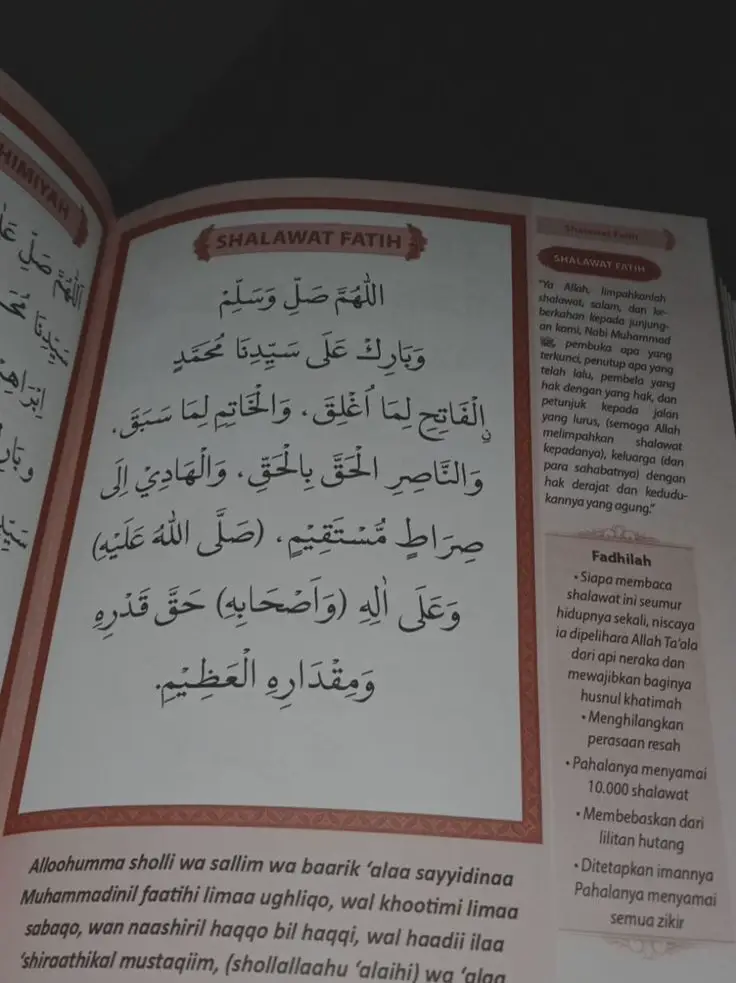 HIMIYAH
SHALAWAT FATIH
اللّٰهُمَّ صَلِّ وَسَلِّمْ
وَبَارِكْ عَلَى سَيِّدِنَا مُحَمَّدٍ
نِ الْفَاتِحِ لِمَا اُغْلِقَ، وَالْخَاتِمِ لِمَا سَبَقَ،
وَالنَّاصِرِ الْحَقَّ بِالْحَقِّ، وَالْهَادِيْ اِلَى
صِرَاطٍ مُّسْتَقِيْمٍ، (صَلَّى اللهُ عَلَيْهِ)
وَعَلَى اٰلِهِ (وَاَصْحَابِهِ) حَقَّ قَدْرِهِ
وَمِقْدَارِهِ الْعَظِيْمِ.
Alloohumma sholli wa sallim wa baarik ‘alaa sayyidinaa
Muhammadinil faatihi limaa ughliqo, wal khootimi limaa
sabaqo, wan naashiril haqqo bil haqqi, wal haadii ilaa
‘shiraathikal mustaqiim, (shollallaahu ‘alaihi) wa ‘alaa
Shalawat Fatih
SHALAWAT FATIH
"Ya Allah, limpahkanlah
shalawat, salam, dan ke-
berkahan kepada junjung-
an kami, Nabi Muhammad
ﷺ, pembuka apa yang
terkunci, penutup apa yang
telah lalu, pembela yang
hak dengan yang hak, dan
petunjuk kepada jalan
yang lurus, (semoga Allah
melimpahkan shalawat
kepadanya), keluarga (dan
para sahabatnya) dengan
hak derajat dan kedudu-
kannya yang agung."
Fadhilah
• Siapa membaca
shalawat ini seumur
hidupnya sekali, niscaya
ia dipelihara Allah Ta'ala
dari api neraka dan
mewajibkan baginya
husnul khatimah
• Menghilangkan
perasaan resah
• Pahalanya menyamai
10.000 shalawat
• Membebaskan dari
lilitan hutang
• Ditetapkan imannya
Pahalanya menyamai
semua zikir